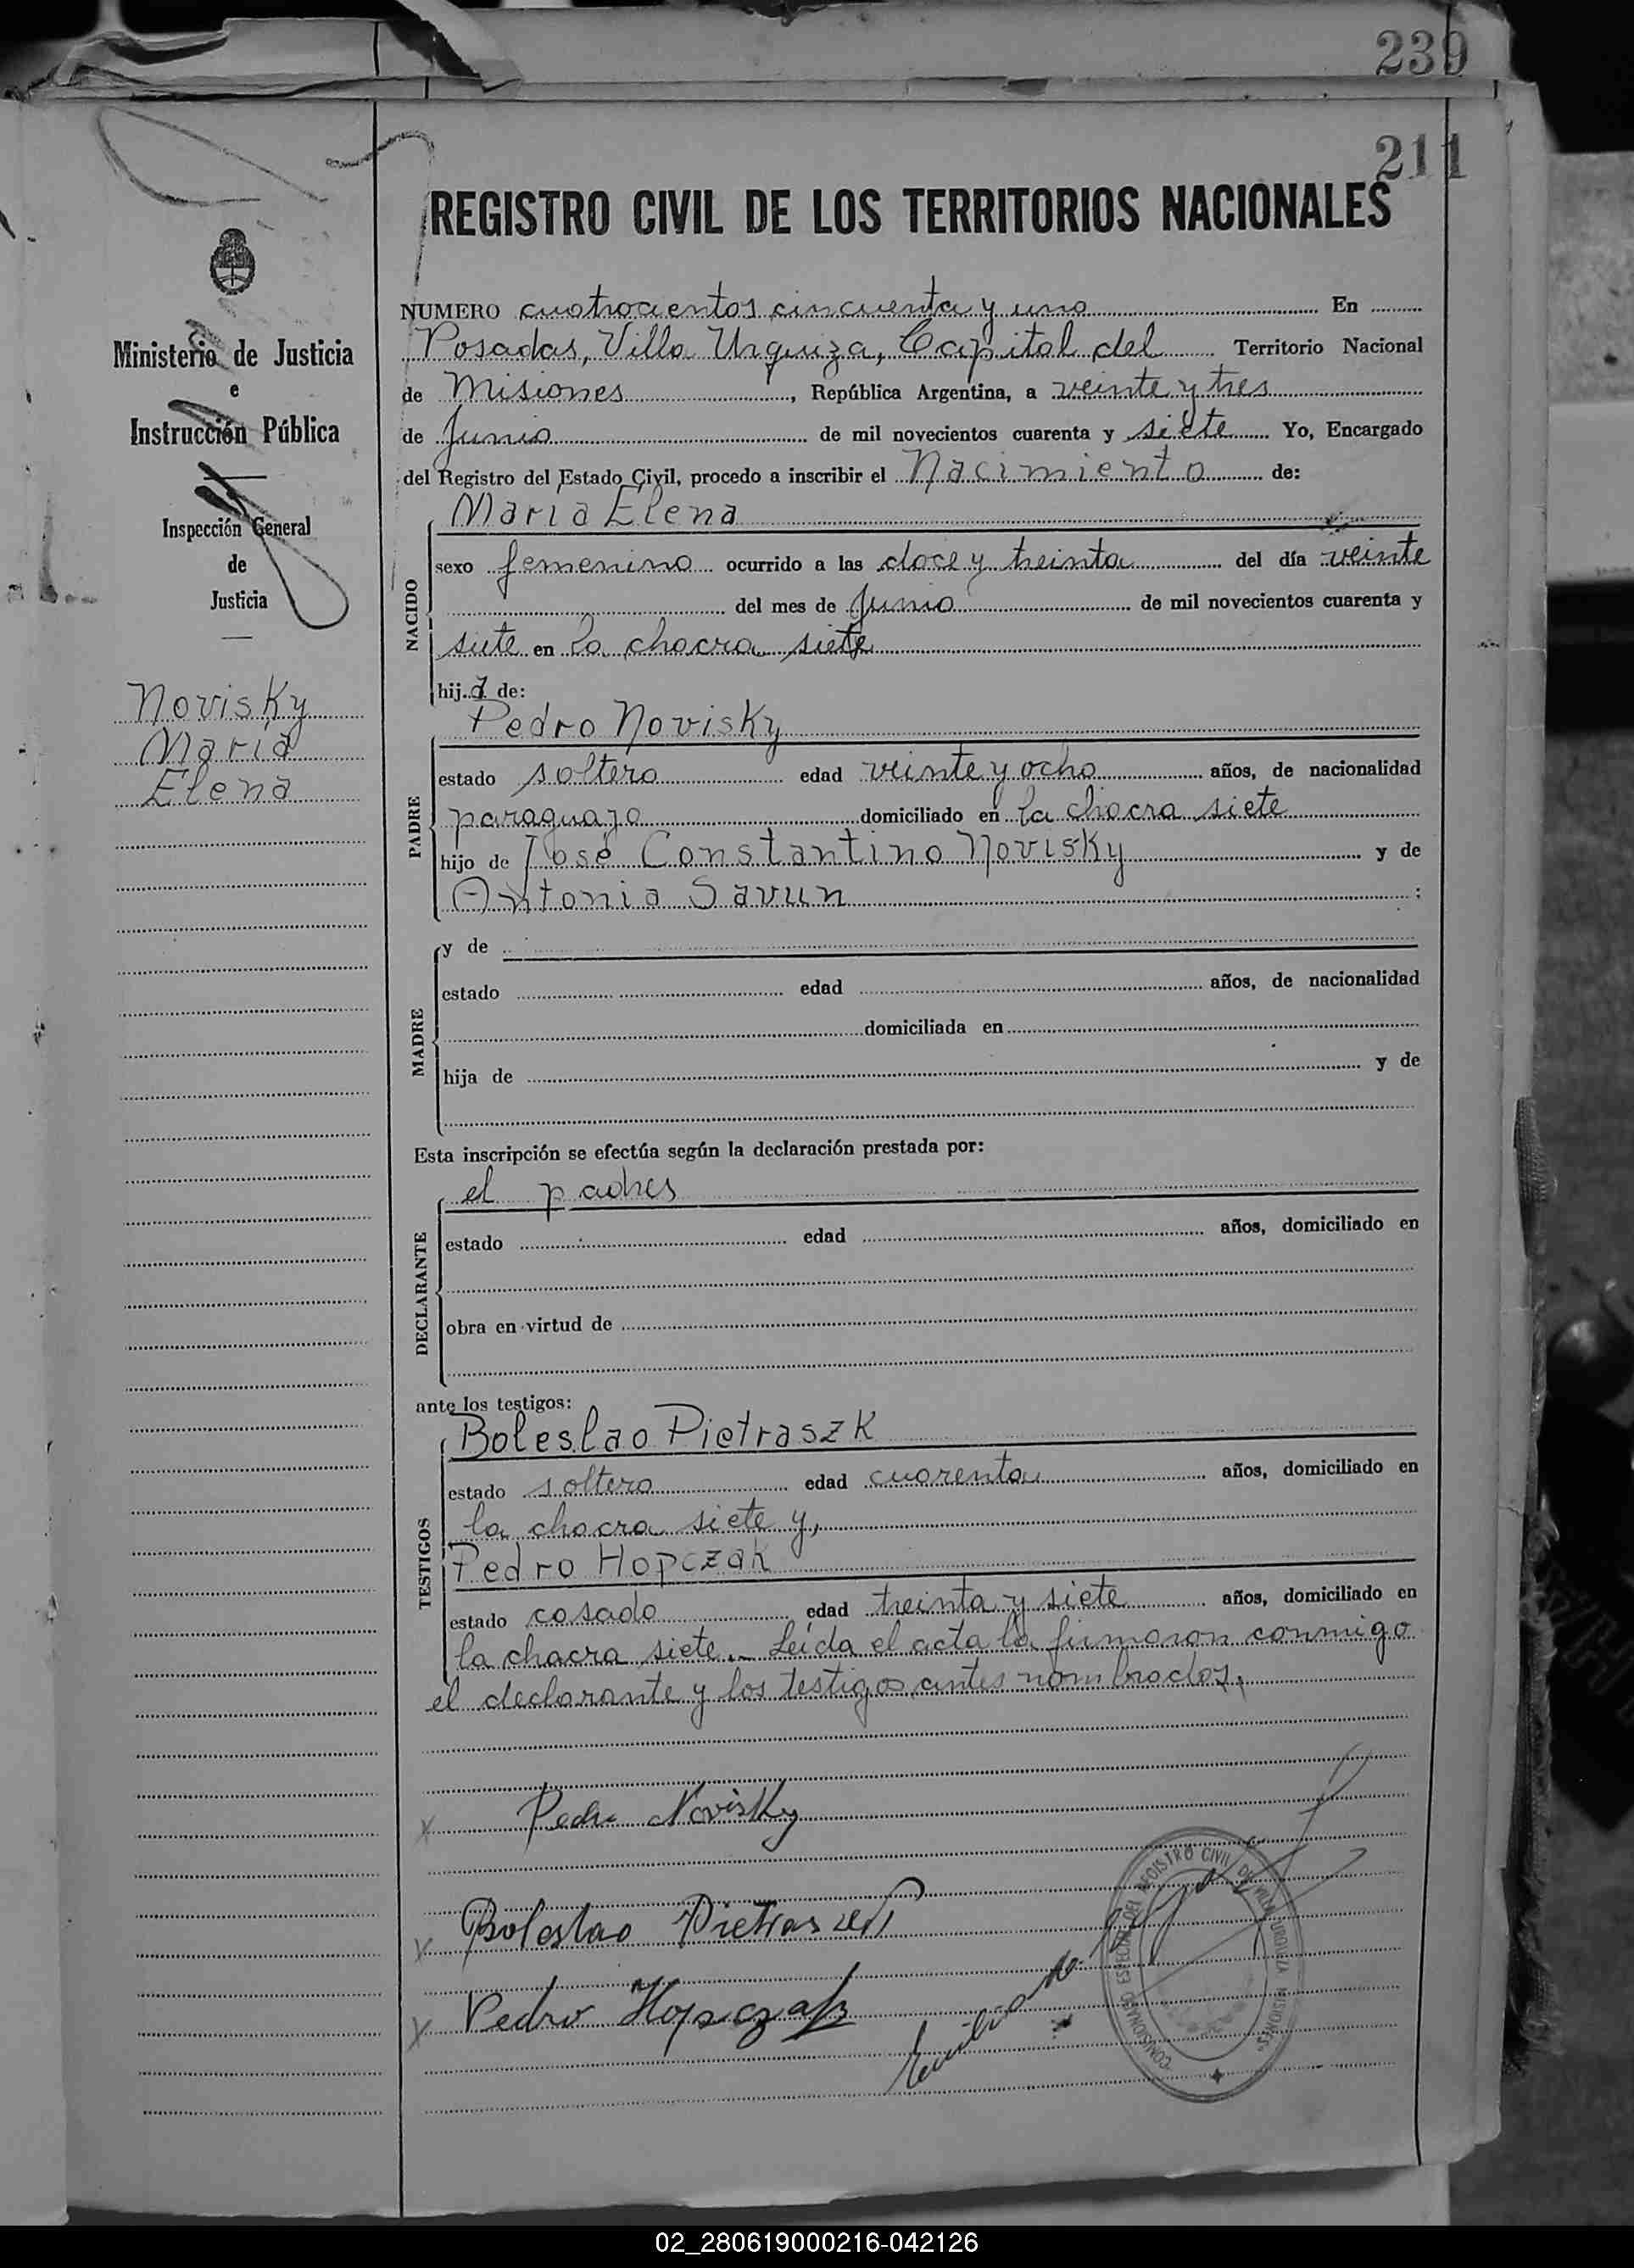 239
211
REGISTRO CIVIL DE LOS TERRITORIOS NACIONALES
Ministerio de Justicia
e
Instrucción Pública
Inspección General
de
Justicia
Novisky
María
Elena
NUMERO cuatrocientos cincuenta y uno En
Posadas, Villa Urquiza, Capital del Territorio Nacional
de Misiones, República Argentina, a veinte y tres
de Junio de mil novecientos cuarenta y siete Yo, Encargado
del Registro del Estado Civil, procedo a inscribir el Nacimiento de:
NACIDO
María Elena
sexo femenino ocurrido a las doce y treinta del día veinte
del mes de Junio de mil novecientos cuarenta y
siete en la chacra siete
hija de:
PADRE
Pedro Novisky
estado soltero edad veinte y ocho años, de nacionalidad
paraguayo domiciliado en la chacra siete
hijo de José Constantino Novisky y de
Antonia Savun ;
MADRE
y de
estado edad años, de nacionalidad
domiciliada en
hija de y de
Esta inscripción se efectúa según la declaración prestada por:
DECLARANTE
el padres
estado edad años, domiciliado en
obra en virtud de
ante los testigos:
TESTIGOS
Boleslao Pietraszk
estado soltero edad cuarenta años, domiciliado en
la chacra siete y,
Pedro Hopczak
estado casado edad treinta y siete años, domiciliado en
la chacra siete.- Leída el acta la firmaron conmigo
el declarante y los testigos antes nombrados.
x Pedro Novisky
x Boleslao
x Pedro Hopczak
COMISIONADO ESPECIAL DEL REGISTRO CIVIL DE VILLA URQUIZA MISIONES
02_280619000216-042126